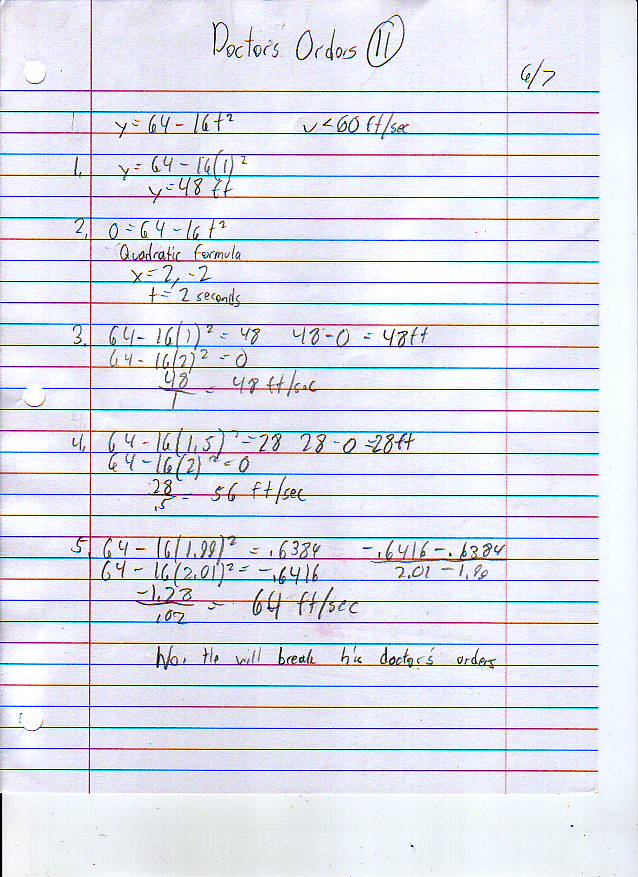 Doctor's Orders 11
6/7
y = 64 - 16t² v < 60 ft/sec
1. y = 64 - 16(1)²
y = 48 ft
2. 0 = 64 - 16t²
Quadratic formula
x = 2, -2
t = 2 seconds
3. 64 - 16(1)² = 48 48 - 0 = 48ft
64 - 16(2)² = 0
48/1 = 48 ft/sec
4. 64 - 16(1.5)² = 28 28 - 0 = 28ft
64 - 16(2)² = 0
28/.5 = 56 ft/sec
5. 64 - 16(1.99)² = .6384 -.6416 - .6384
64 - 16(2.01)² = -.6416 2.01 - 1.99
-1.28/.02 = 64 ft/sec
No. He will break his doctor's orders